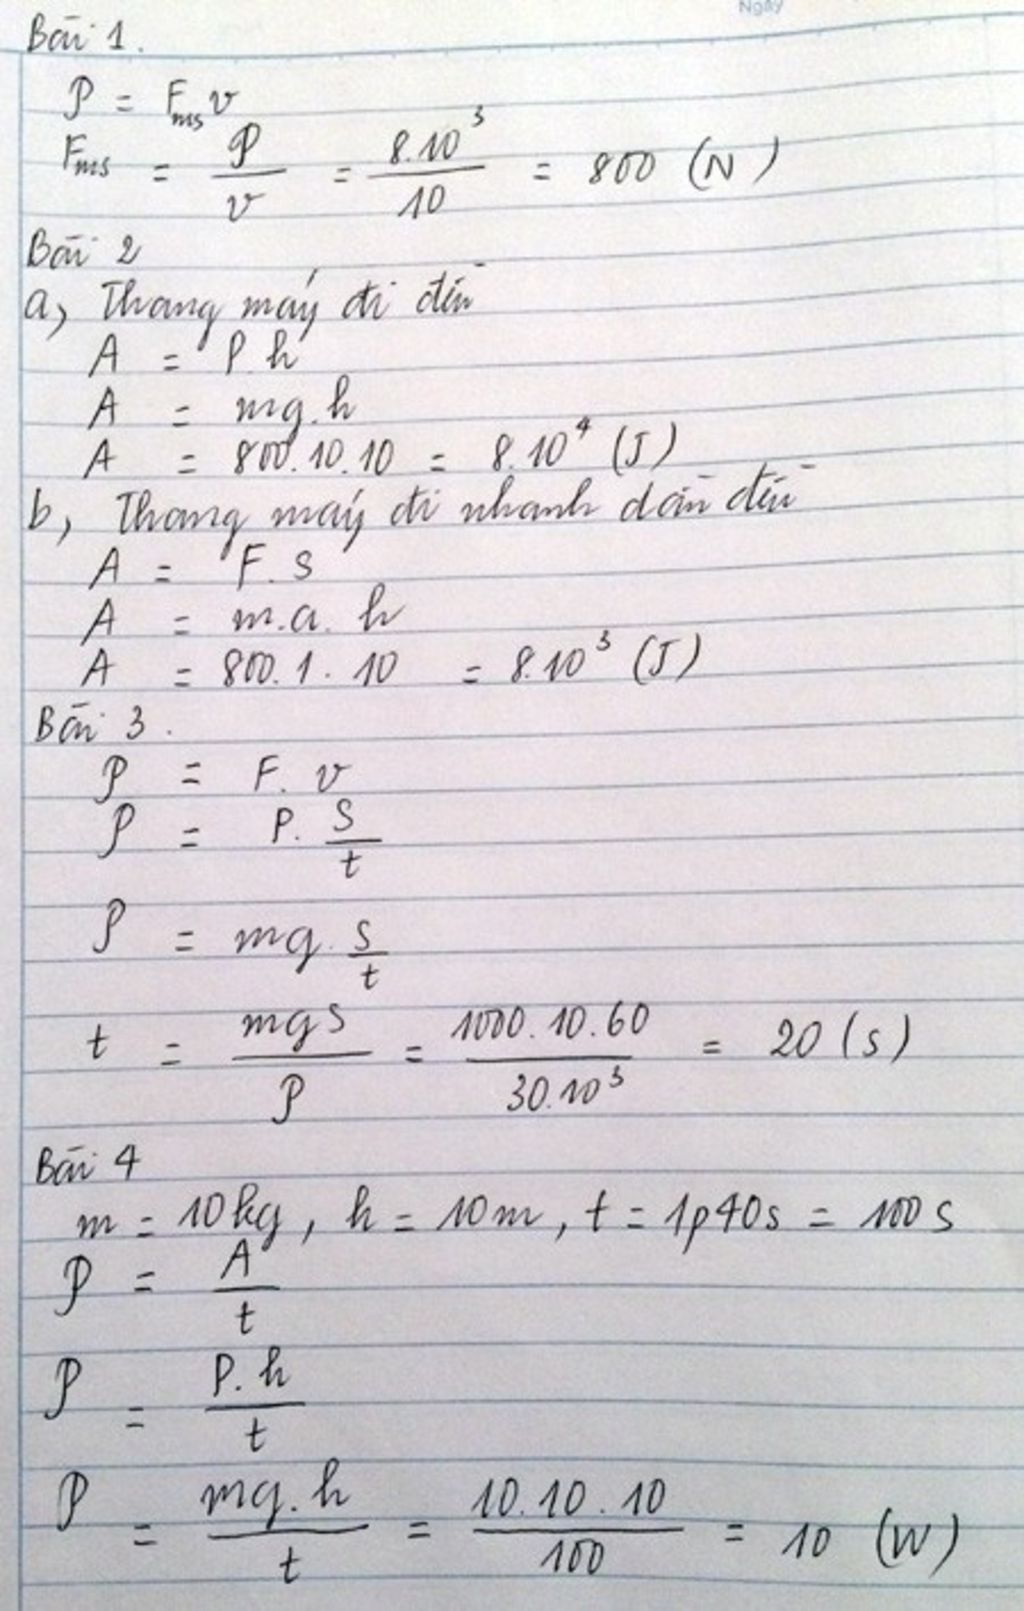 Ngày
Bài 1.
P = Fms v
Fms = P/v = 8.10³/10 = 800 (N)
Bài 2
a, Thang máy đi đều
A = P.h
A = mg.h
A = 800.10.10 = 8.10⁴ (J)
b, Thang máy đi nhanh dần đều
A = F.s
A = m.a.h
A = 800.1.10 = 8.10³ (J)
Bài 3.
P = F.v
P = P.S/t
P = mg.S/t
t = mgS/P = 1000.10.60/30.10³ = 20 (s)
Bài 4
m = 10kg, h = 10m, t = 1p40s = 100s
P = A/t
P = P.h/t
P = mg.h/t = 10.10.10/100 = 10 (W)